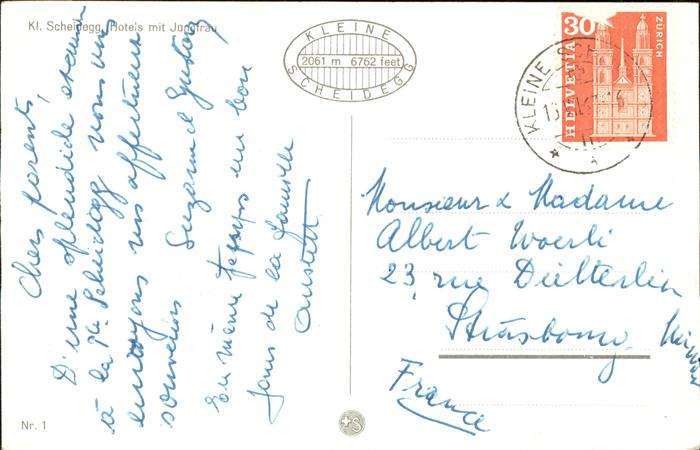 Kl. Scheidegg, Hotels mit Jungfrau
Chers parents,
D'une splendide excursion
à la Pte Scheidegg nous vous
envoyons nos affectueux
souvenirs Suzanne Gustav
En même temps un bon
jour de la famille
KLEINE
2061 m 6762 feet
SCHEIDEGG
30
HELVETIA
ZÜRICH
KLEINE SCH
Monsieur & Madame
Albert Woerli
23, rue Dietterlin
Strasbourg
France
Nr. 1
+S